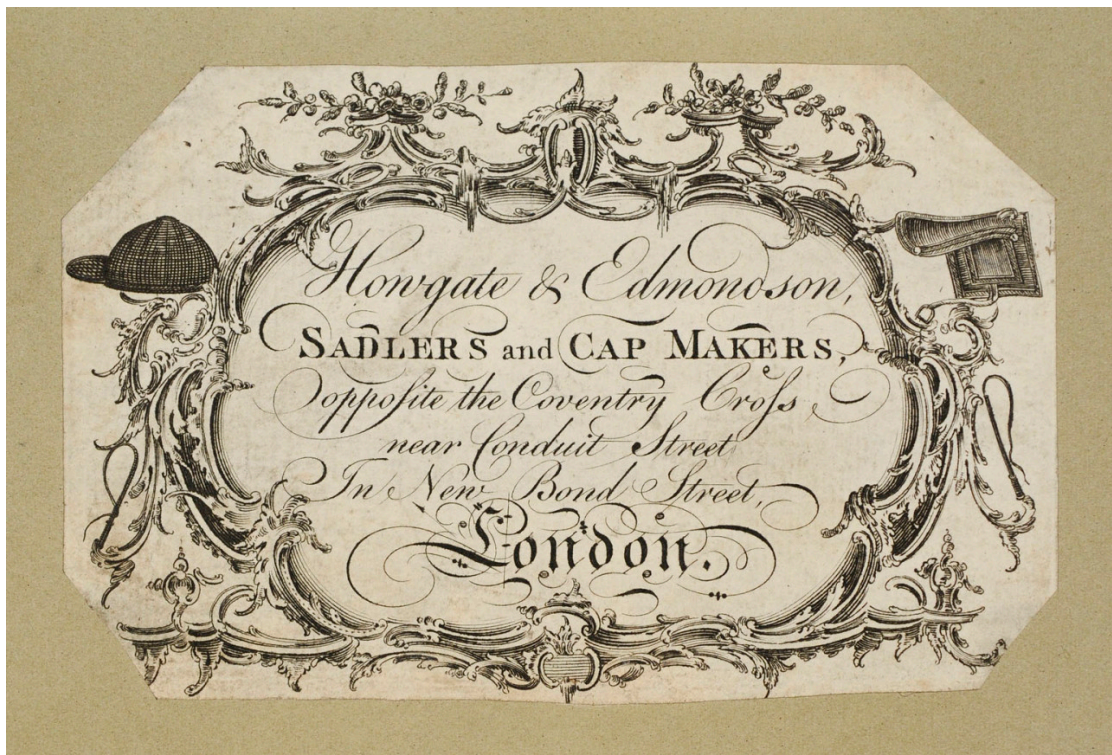 Howgate & Edmondson,
SADLERS and CAP MAKERS,
oppoſite the Coventry Croſs,
near Conduit Street
In New Bond Street,
London.